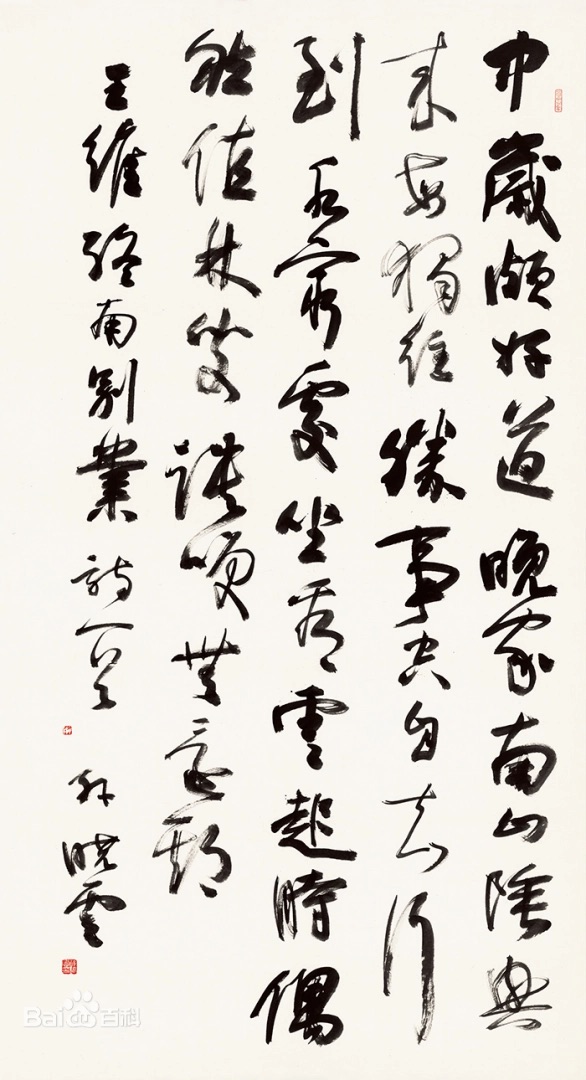 中歲頗好道晚家南山陲興
來每獨往勝事空自知行
到水窮處坐看雲起時偶
然值林叟談笑無還期
王維終南別業詩一首 孫曉雲
Baidu百科